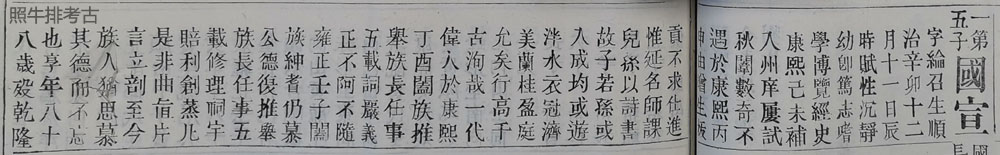 照牛排考古
第五子
國宣
字綸召生順
治辛卯十二
月十一日辰
時賦性沉靜
幼卽篤志嗜
學博覽經史
康熙己未補
入州庠屢試
秋闈數奇不
遇於康熙丙
申由增生
貢不求仕進
惟延名師課
兒孫以詩書
故子若孫或
入成均或遊
泮水衣冠濟
美蘭桂盈庭
允矣行高千
古洵哉一代
偉人於康熙
丁酉闔族推
舉族長任事
五載詞嚴義
正不阿不隨
雍正壬子闔
族紳者仍慕
公德復推舉
族長任事五
載修理祠宇
賠利創蒸凡
是非曲直片
言立剖至今
族人猶思慕
其德而不忘
也享年八十
八歲歿乾隆